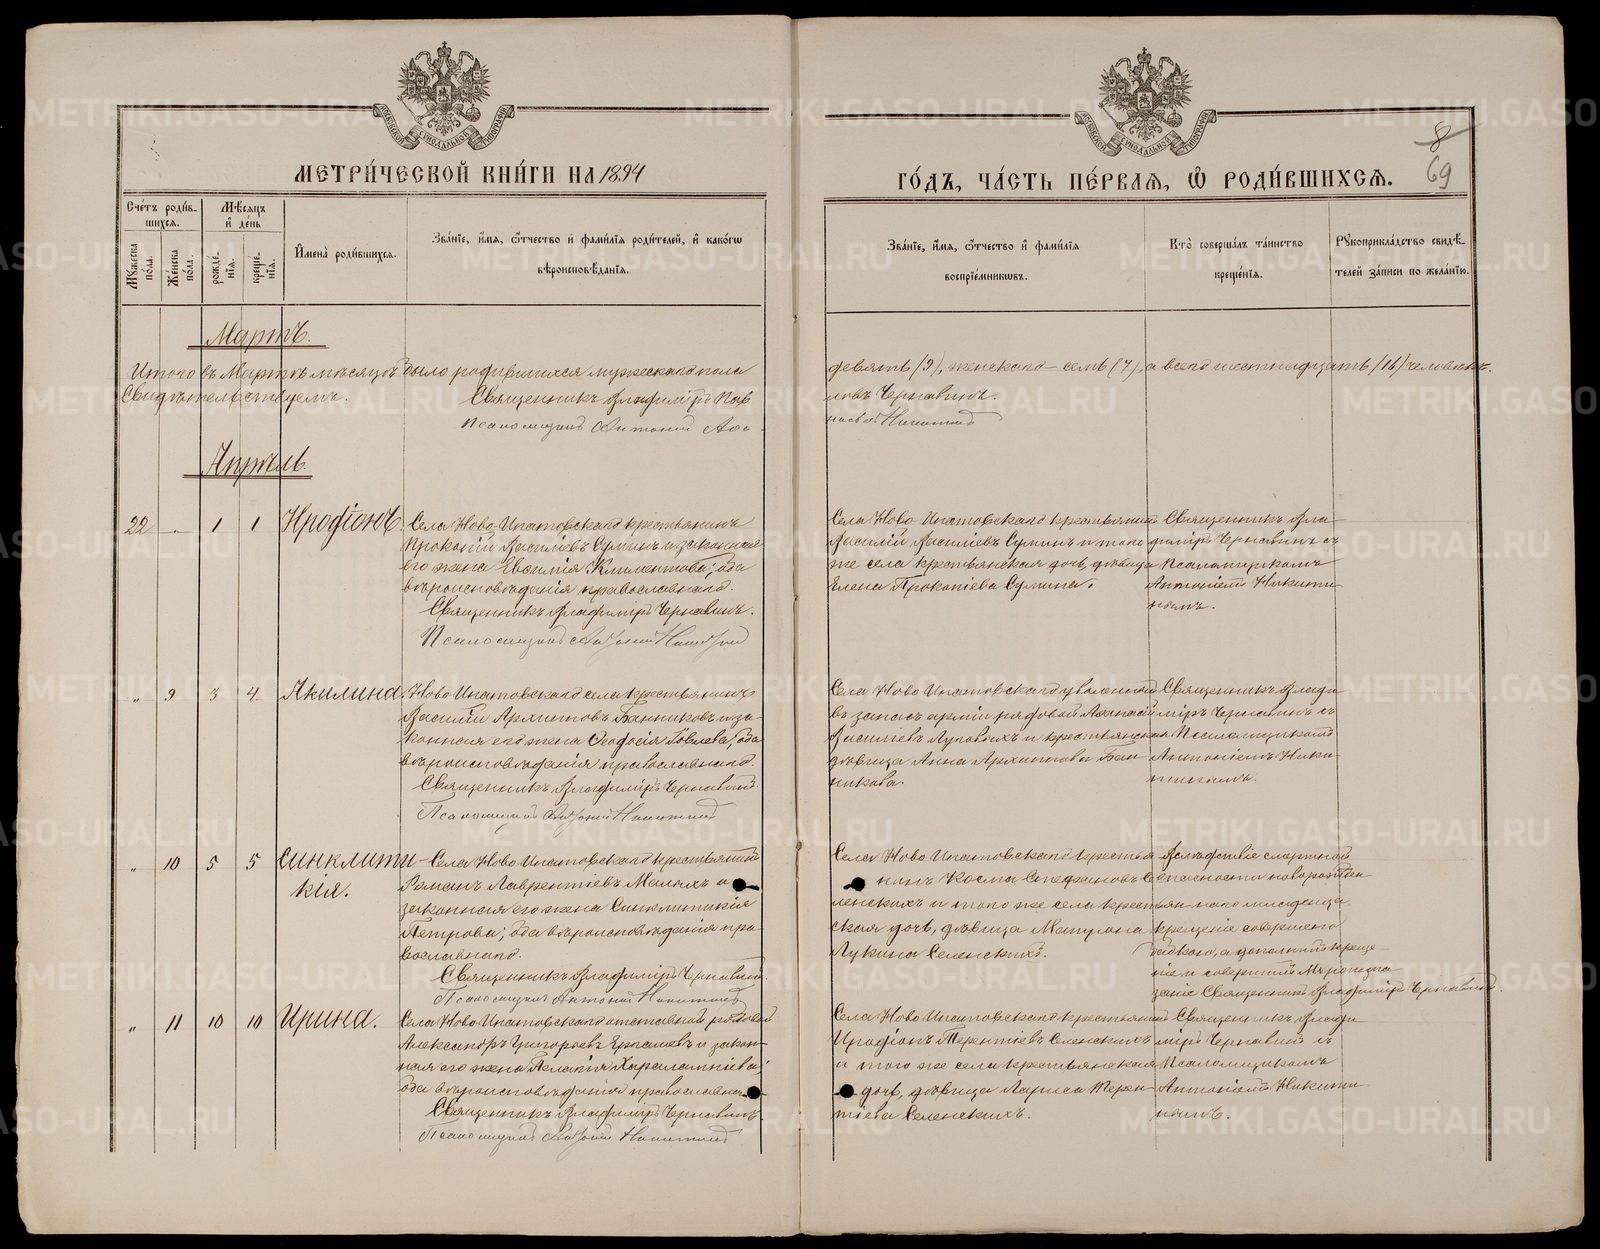 МЕТРИ́ЧЕСКОЙ КНИ́ГИ НА 1894
ГО́ДЪ, ЧА́СТЬ ПЕ́РВАЯ, Ѽ РОДИ́ВШИХСЯ.
8
69
Сче́тъ роди́в-
шихся.
Мѣсяцъ
и҆ де́нь
Му́жеска
по́ла.
Же́нска
по́ла.
рожде́-
нїѧ.
креще́-
нїѧ.
И҆мена̀ роди́вшихся.
Зва́нїе, и҆́мѧ, ѻ҆́тчество и҆ фами́лїѧ роди́телей, и҆ како́гѡ
вѣроисповѣ́данїѧ.
Зва́нїе, и҆́мѧ, ѻ҆́тчество и҆ фами́лїѧ
воспрїе́мниковъ.
Кто̀ соверша́лъ та́инство
креще́нїѧ.
Рꙋкоприкла́дство свидѣ́-
телей за́писи по жела́нїю.
Мартъ.
Итого въ Мартѣ мѣсяцѣ было родившихся мужескаго пола
девять (9), женскаго – семь (7), а всего шестнадцать (16) человѣкъ.
Свидѣтельствуемъ.
Священникъ Владиміръ Пав
ловъ Чернавинъ.
Псаломщикъ Антоній Аѳа-
насьевъ Никитинъ
Апрѣль.
22 – 1 1 Иродіонъ
Села Ново-Ипатовскаго крестьянинъ
Прокопій Василіевъ Суминъ и законная
его жена Евѳимія Климентова; оба
вѣроисповѣданія православнаго.
Священникъ Владиміръ Чернавинъ.
Псаломщикъ Антоній Никитинъ
Села Ново-Ипатовскаго крестьянинъ
Василій Василіевъ Суминъ и того
же села крестьянская дочь, дѣвица
Елена Прокопіева Сумина.
Священникъ Вла-
диміръ Чернавинъ съ
Псаломщикомъ
Антоніемъ Никити-
нымъ.
„ 9 3 4 Акилина.
Ново-Ипатовскаго села крестьянинъ
Василій Архиповъ Банниковъ и за-
конная его жена Ѳеодосія Іовлева; оба
вѣроисповѣданія православнаго.
Священникъ Владиміръ Чернавинъ.
Псаломщикъ Антоній Никитинъ
Села Ново-Ипатовскаго уволенный
въ запасъ арміи рядовой Аѳанасій
Василіевъ Луповыхъ и крестьянская
дѣвица Анна Архиппова Бан-
никова.
Священникъ Влади-
міръ Чернавинъ съ
Псаломщикомъ
Антоніемъ Ники-
тинымъ.
„ 10 5 5 Синклити
кія.
Села Ново-Ипатовскаго крестьянинъ
Романъ Лаврентіевъ Малыхъ и
законная его жена Синклитикія
Петрова; оба вѣроисповѣданія пра-
вославнаго.
Священникъ Владиміръ Чернавинъ
Псаломщикъ Антоній Никитинъ
Села Ново-Ипатовскаго крестья
нинъ Косма Стефановъ Се
ленскихъ и того же села крестьян-
ская дочь, дѣвица Матрона
Лукина Селенскихъ.
Вслѣдствіе смертной
опасности новорожден-
наго младенца
крещеніе совершено
бабкою, а дополнилъ креще-
ніе и совершилъ Мѵропома
заніе Священникъ Владиміръ Чернавинъ.
„ 11 10 10 Ирина.
Села Ново-Ипатовскаго отставной рядовой
Александръ Григорьевъ Ермаевъ и закон-
ная его жена Пелагія Харалампіева;
оба вѣроисповѣданія православнаго
Священникъ Владиміръ Чернавинъ
Псаломщикъ Антоній Никитинъ
Села Ново-Ипатовскаго крестьянинъ
Иродіонъ Терентіевъ Селенскихъ
и того же села крестьянская
дочь, дѣвица Лариса Терен-
тіева Селенскихъ.
Священникъ Влади-
міръ Чернавинъ съ
Псаломщикомъ
Антоніемъ Никити-
нымъ.
METRIKI.GASO-URAL.RU